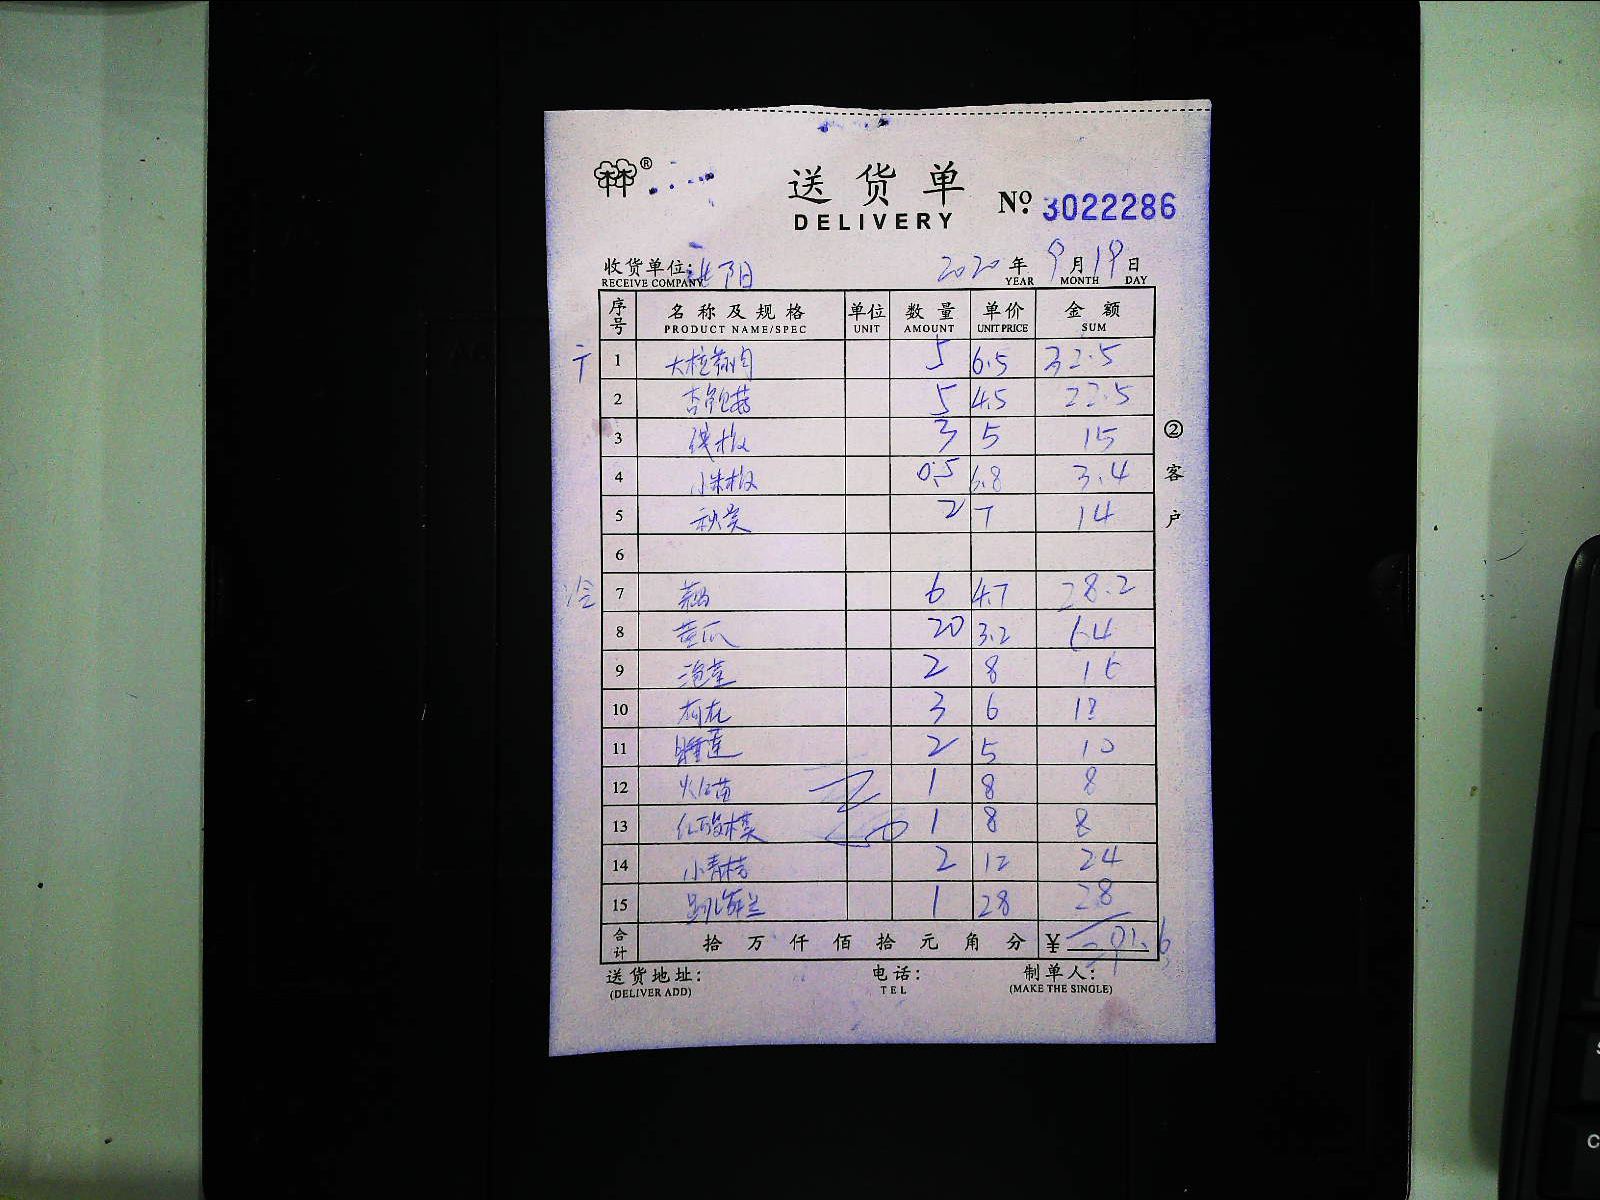 ®
送货单
DELIVERY
No. 3022286
收货单位: 沈阳 2020年9月19日
RECEIVE COMPANY YEAR MONTH DAY
序号 名称及规格 单位 数量 单价 金额
PRODUCT NAME/SPEC UNIT AMOUNT UNIT PRICE SUM
1 5 6.5 32.5
2 杏鲍菇 5 4.5 22.5
3 线椒 3 5 15
4 小米椒 0.5 6.8 3.4
5 秋葵 2 7 14
6
冷 7 藕 6 4.7 28.2
8 黄瓜 20 3.2 64
9 2 8 16
10 3 6 18
11 睡莲 2 5 10
12 火焰苗 1 8 8
13 1 8 8
14 小青桔 2 12 24
15 1 28 28
合计 拾万仟佰拾元角分 ¥ 291.6
② 客户
送货地址: 电话: 制单人:
(DELIVER ADD) TEL (MAKE THE SINGLE)